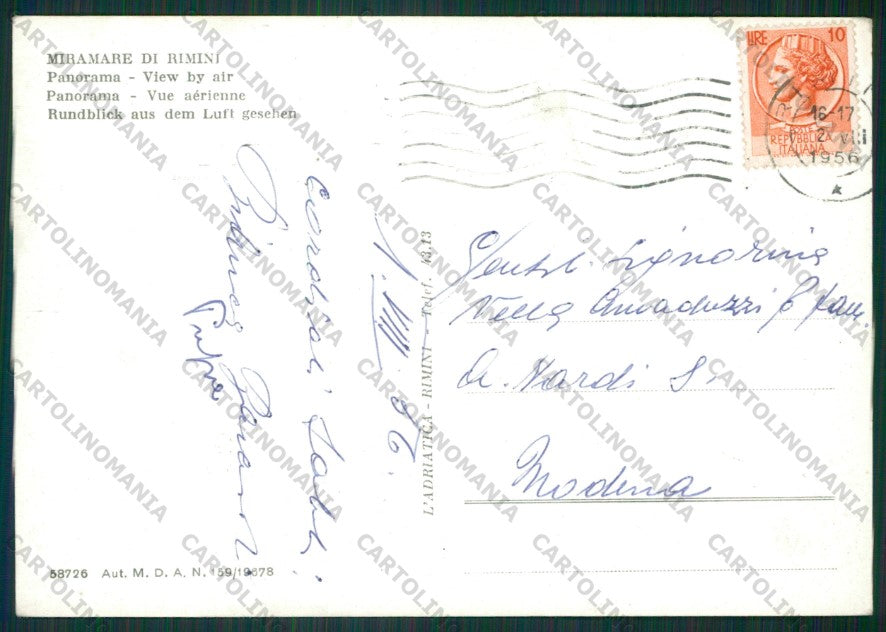 MIRAMARE DI RIMINI
Panorama - View by air
Panorama - Vue aérienne
Rundblick aus dem Luft gesehen
LIRE 10
POSTE
REPVBBLICA
ITALIANA
16-17
2 VIII
1956
Cordiali Saluti
Bianca
1. VIII. 56.
L'ADRIATICA - RIMINI - Telef. 43.13
Gentil. Signorina
Vella Amaduzzi e fam.
Nardi
Modena
58726 Aut. M. D. A. N. 159/19678
CARTOLINOMANIA